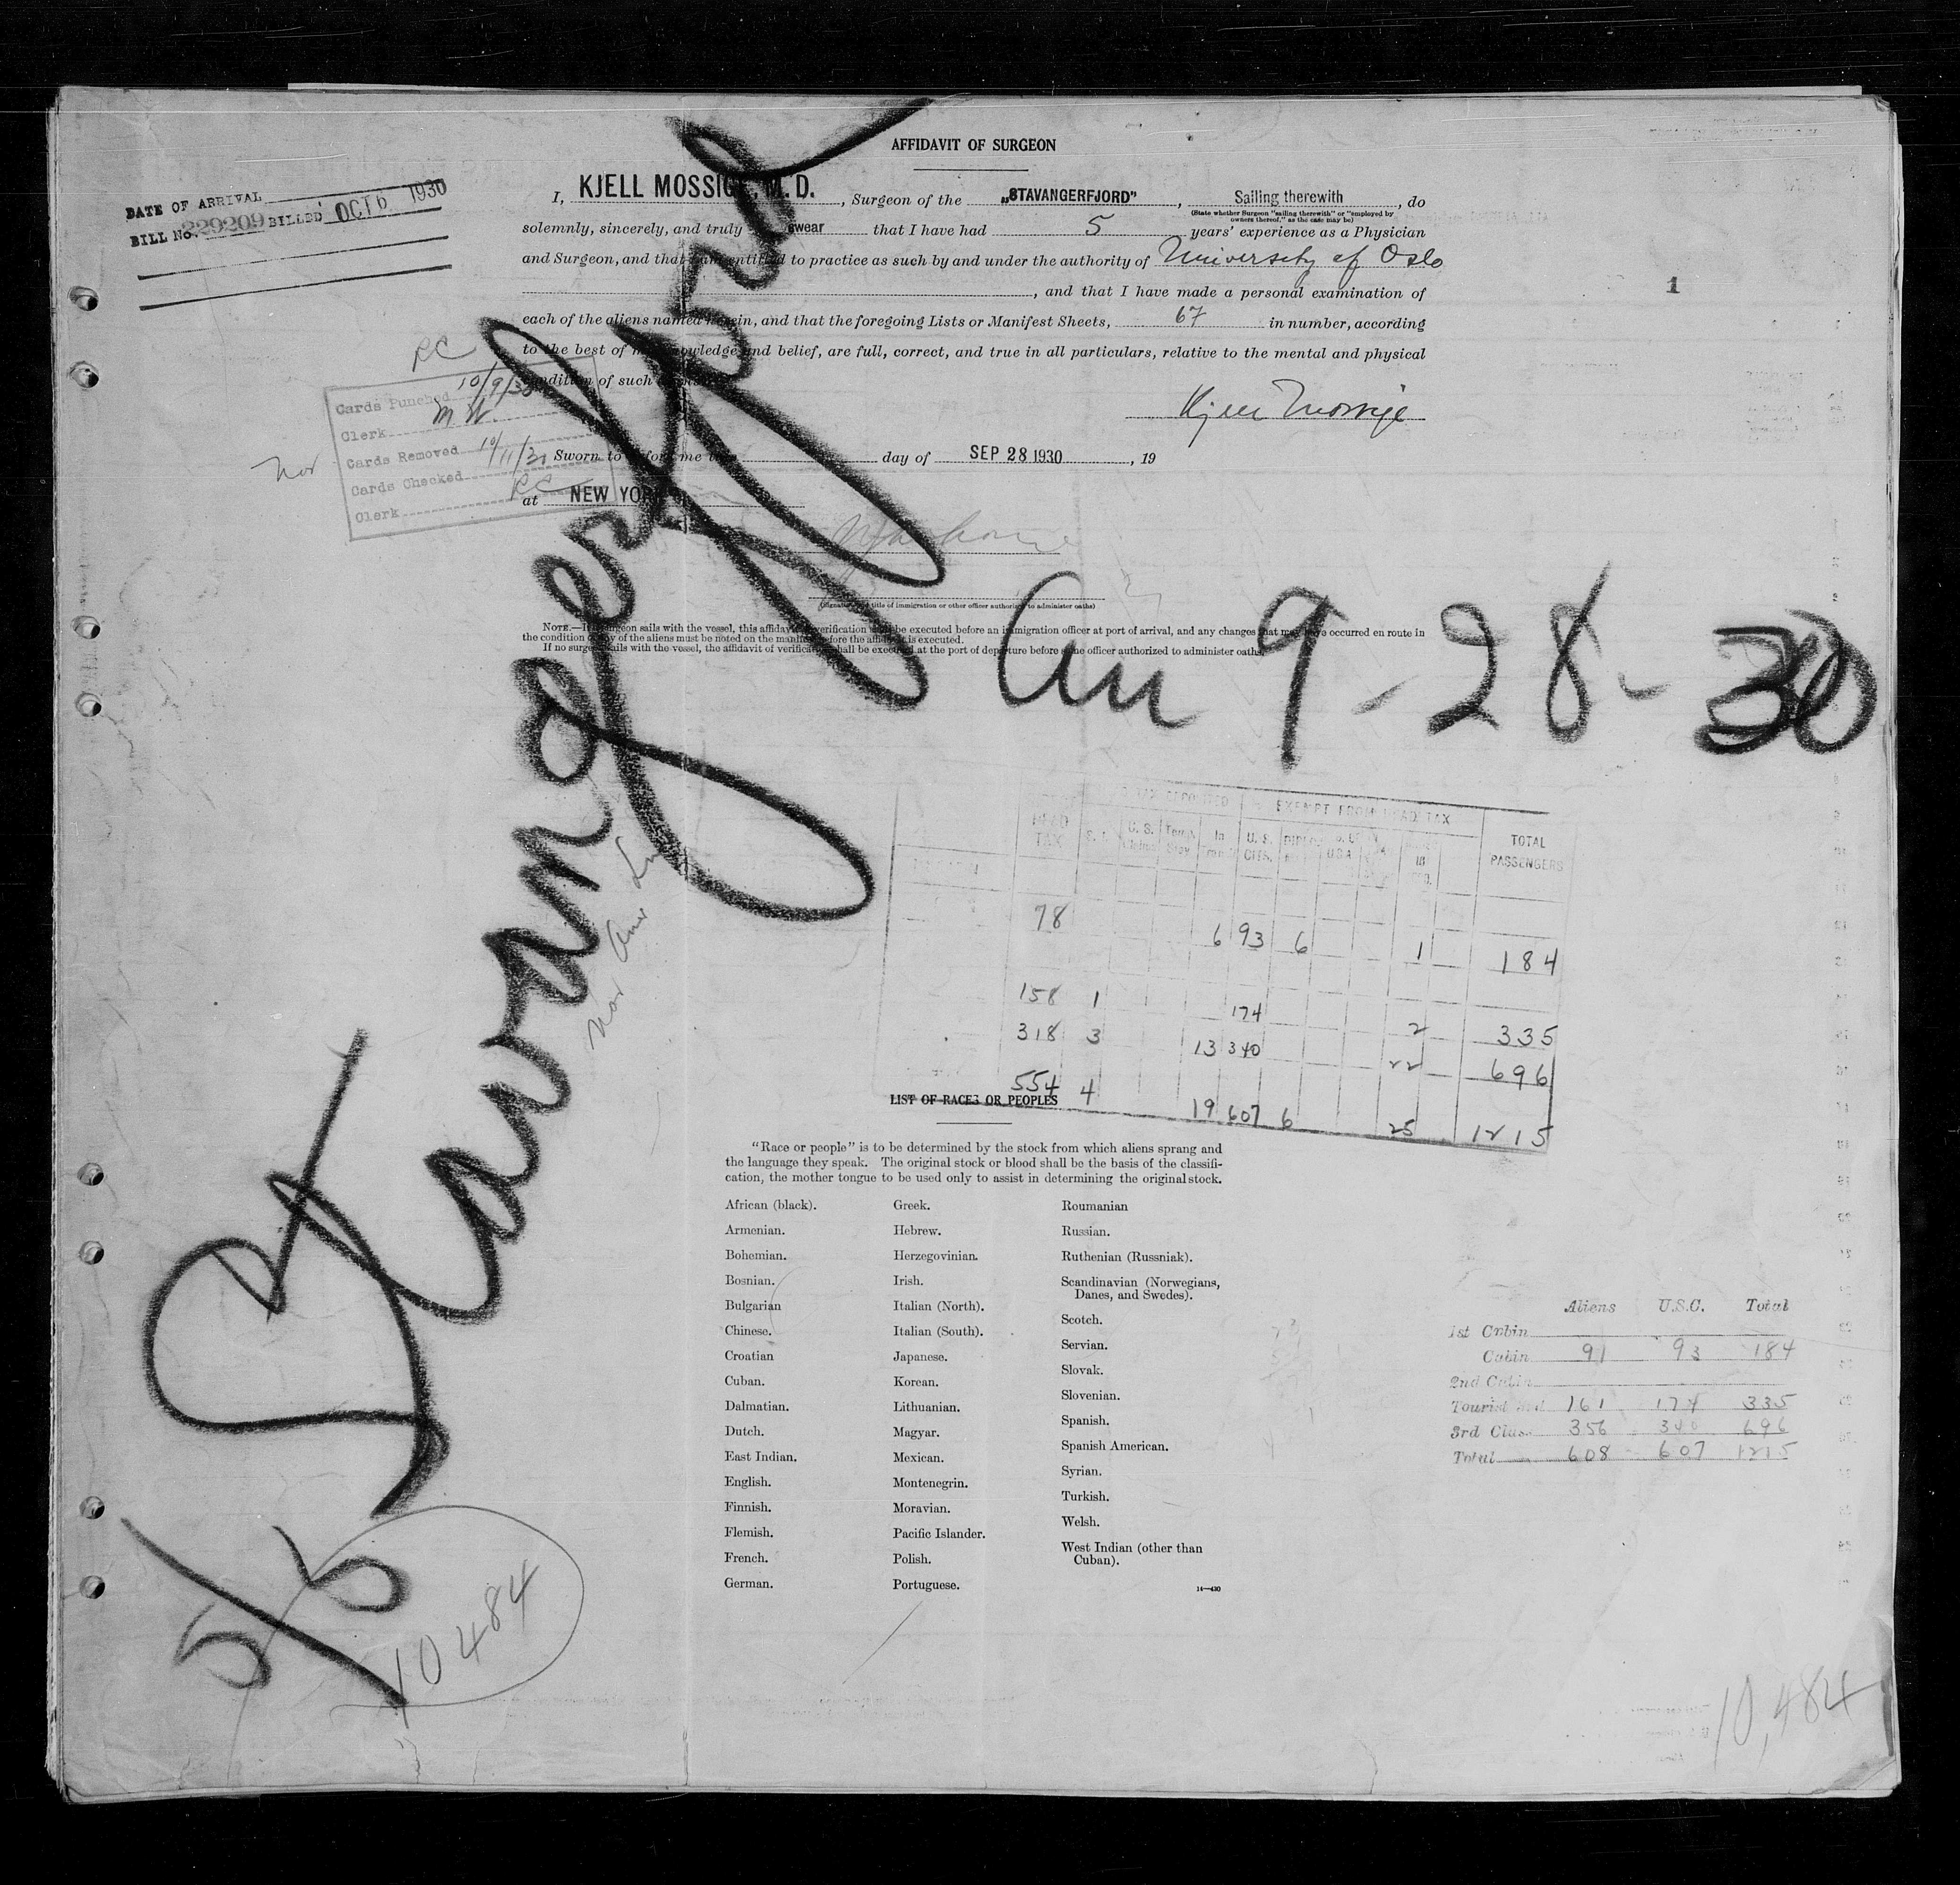 AFFIDAVIT OF SURGEON
DATE OF ARRIVAL
BILL No. 229209 BILLED OCT 6 1930
I, KJELL MOSSIGE, M. D., Surgeon of the „STAVANGERFJORD”, Sailing therewith, do
(State whether Surgeon "sailing therewith" or "employed by owners thereof," as the case may be)
solemnly, sincerely, and truly swear that I have had 5 years' experience as a Physician
and Surgeon, and that I am entitled to practice as such by and under the authority of University of Oslo
, and that I have made a personal examination of
each of the aliens named herein, and that the foregoing Lists or Manifest Sheets, 67 in number, according
to the best of my knowledge and belief, are full, correct, and true in all particulars, relative to the mental and physical
condition of such aliens.
Kjell Mossige
RC
Cards Punched 10/9/30
Clerk M W.
Cards Removed 10/11/30
Cards Checked
Clerk RC
Nor
Sworn to before me this day of SEP 28 1930, 19
at NEW YORK
(Signature and title of immigration or other officer authorized to administer oaths)
NOTE.—If surgeon sails with the vessel, this affidavit of verification shall be executed before an immigration officer at port of arrival, and any changes that may have occurred en route in
the condition of any of the aliens must be noted on the manifest before the affidavit is executed.
If no surgeon sails with the vessel, the affidavit of verification shall be executed at the port of departure before some officer authorized to administer oaths.
1
S/S Stavangerfjord
Arr 9-28-30
Nor Amr Line
HEAD TAX
EXEMPT FROM HEAD TAX
U. S. CITS.
TOTAL PASSENGERS
78 6 93 6 1 184
158 1 174 2 335
318 3 13 340 22 696
554 4 19 607 6 25 1215
LIST OF RACES OR PEOPLES
"Race or people" is to be determined by the stock from which aliens sprang and
the language they speak. The original stock or blood shall be the basis of the classifi-
cation, the mother tongue to be used only to assist in determining the original stock.
African (black).
Armenian.
Bohemian.
Bosnian.
Bulgarian
Chinese.
Croatian
Cuban.
Dalmatian.
Dutch.
East Indian.
English.
Finnish.
Flemish.
French.
German.
Greek.
Hebrew.
Herzegovinian.
Irish.
Italian (North).
Italian (South).
Japanese.
Korean.
Lithuanian.
Magyar.
Mexican.
Montenegrin.
Moravian.
Pacific Islander.
Polish.
Portuguese.
Roumanian
Russian.
Ruthenian (Russniak).
Scandinavian (Norwegians,
Danes, and Swedes).
Scotch.
Servian.
Slovak.
Slovenian.
Spanish.
Spanish American.
Syrian.
Turkish.
Welsh.
West Indian (other than
Cuban).
14—430
Aliens U.S.C. Total
1st Cabin
Cabin 91 93 184
2nd Cabin
Tourist 3rd 161 174 335
3rd Class 356 340 696
Total 608 607 1215
10484
10,484